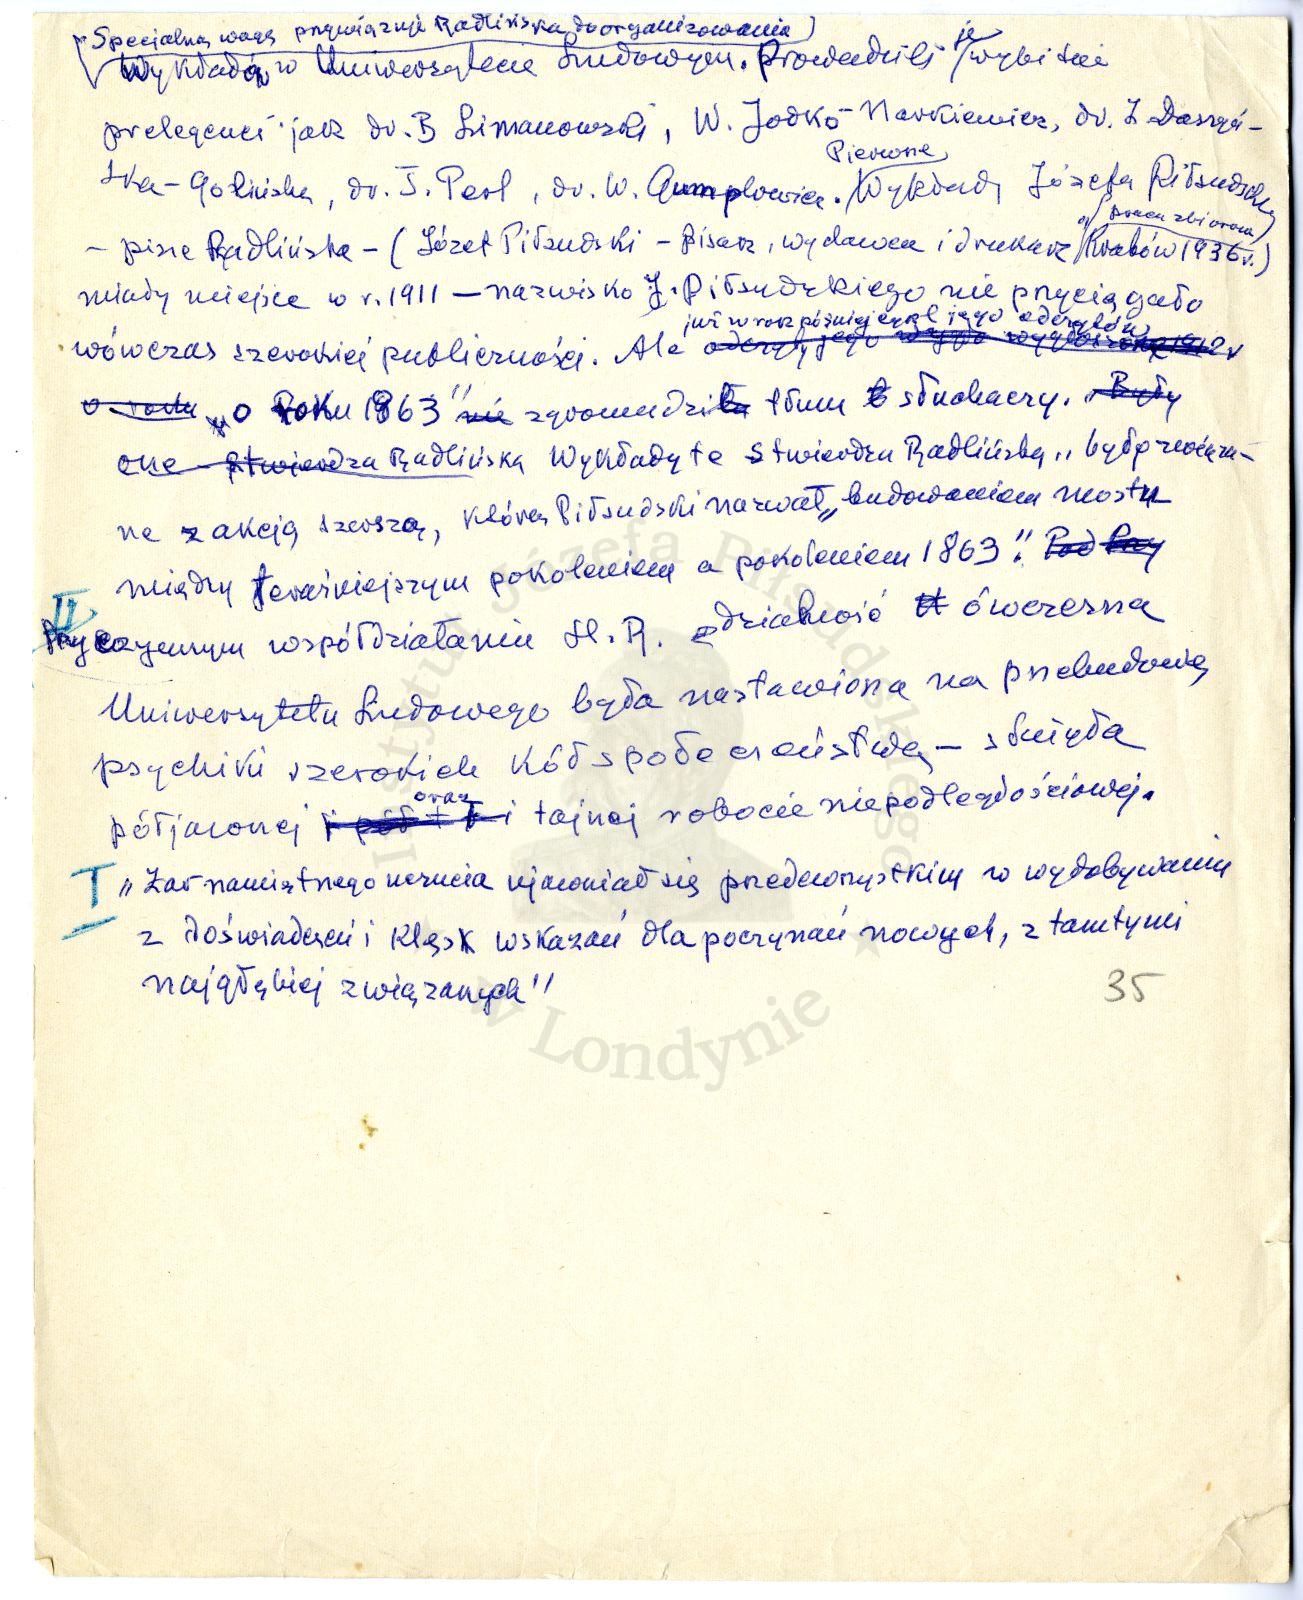 Specjalną wagę przywiązuje Radlińska do organizowania
Wykładów w Uniwersytecie Ludowym. Prowadzili je wybitni
prelegenci jak dr. B Limanowski, W. Jodko-Narkiewicz, dr. Z Daszyń-
ska-Golińska, dr. F. Perl, dr. W. Gumplowicz. Pierwsze Wykłady Józefa Piłsudskiego
- pisze Radlińska - (Józef Piłsudski - pisarz, wydawca i drukarz praca zbiorowa Kraków 1936 r.)
miały miejsce w r. 1911 — nazwisko J. Piłsudskiego nie przyciągało
wówczas szerokiej publiczności. Ale już w rok później cykl jego odczytów
odczyty jego 1912 r
o roku „o Roku 1863" nie zgromadziła tłum słuchaczy. Były
one - stwierdza Radlińska Wykłady te stwierdza Radlińska „były związa-
ne z akcją szerszą, którą Piłsudski nazwał „budowaniem mostu
między teraźniejszym pokoleniem a pokoleniem 1863". Pod Przy
II
Przy czynnym współdziałaniu H. R. działalność ówczesna
Uniwersytetu Ludowego była nastawiona na przebudowę
psychiki szerokich kół społeczeństwa — służyła
półjawnej oraz i tajnej robocie niepodległościowej.
I „Żar namiętnego uczucia ujawniał się przedewszystkim w wydobywaniu
z doświadczeń i klęsk wskazań dla poczynań nowych, z tamtymi
najgłębiej związanych"
35
Instytut Józefa Piłsudskiego
w Londynie